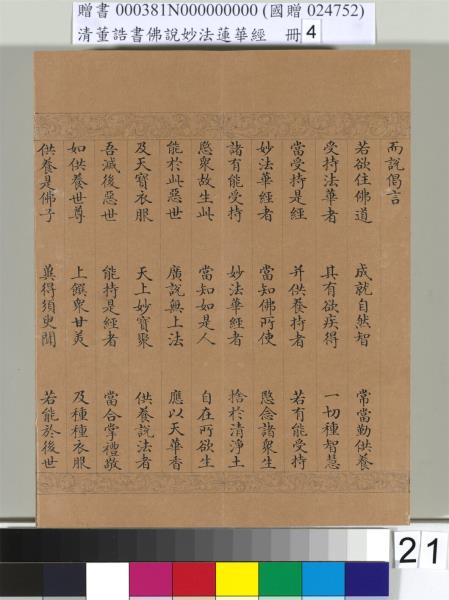 贈書 000381N000000000 (國贈 024752)
清董誥書佛說妙法蓮華經 冊 4
而說偈言
若欲住佛道 成就自然智 常當勤供養
受持法華者 其有欲疾得 一切種智慧
當受持是經 并供養持者 若有能受持
妙法華經者 當知佛所使 愍念諸衆生
諸有能受持 妙法華經者 捨於清淨土
愍衆故生此 當知如是人 自在所欲生
能於此惡世 廣說無上法 應以天華香
及天寶衣服 天上妙寶聚 供養說法者
吾滅後惡世 能持是經者 當合掌禮敬
如供養世尊 上饌衆甘美 及種種衣服
供養是佛子 冀得須臾聞 若能於後世
21